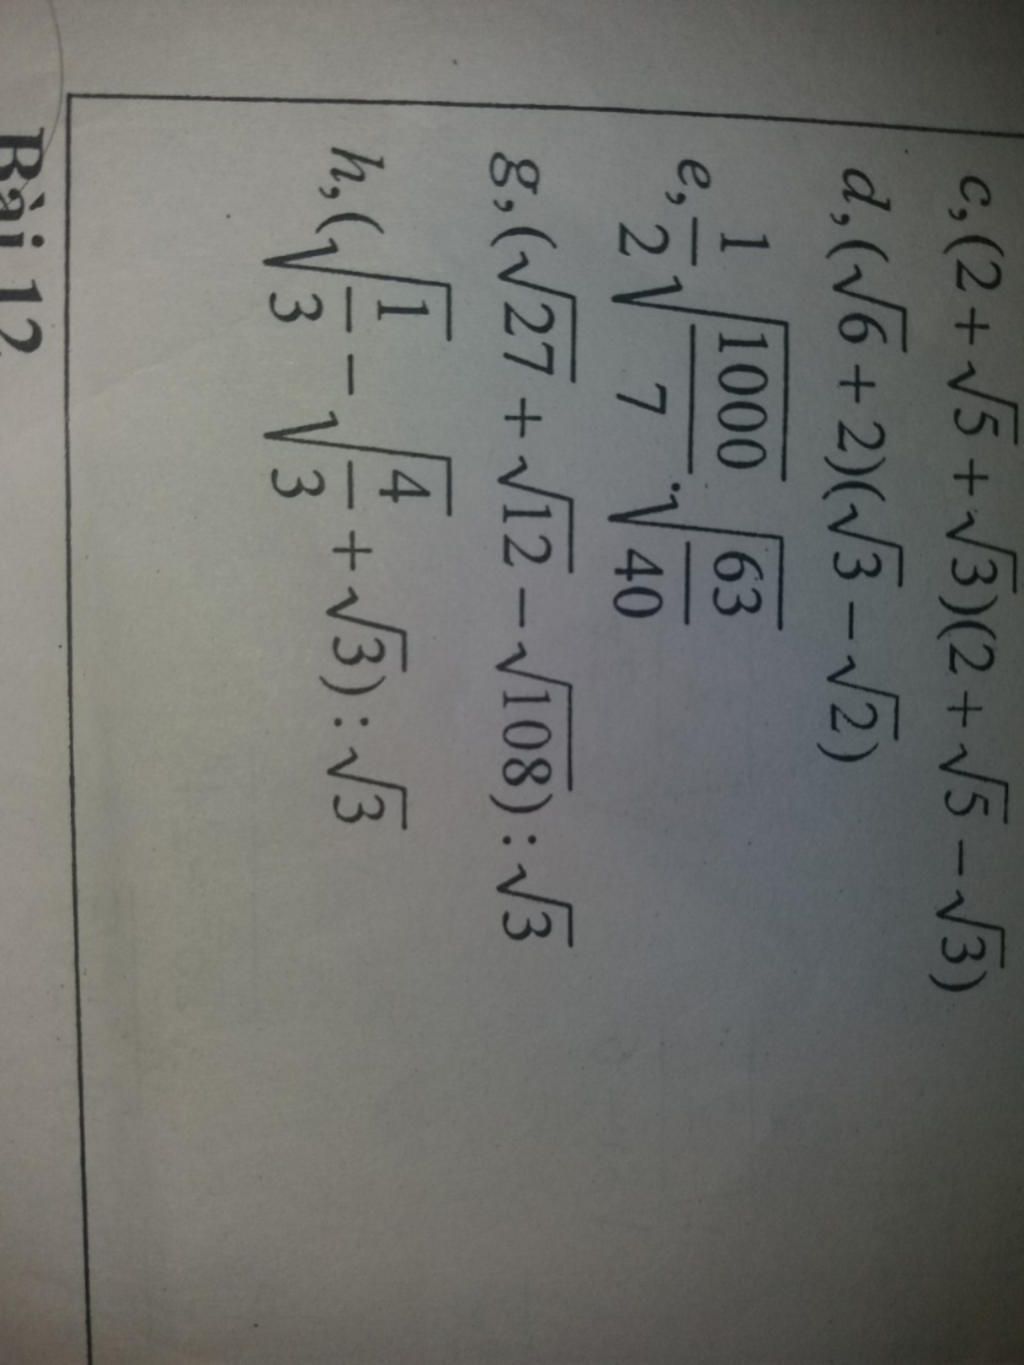 c, (2 + √5 + √3)(2 + √5 − √3)
d, (√6 + 2)(√3 − √2)
e, 1/2 √(1000/7) . √(63/40)
g, (√27 + √12 − √108) : √3
h, (√(1/3) − √(4/3) + √3) : √3
Bài 12